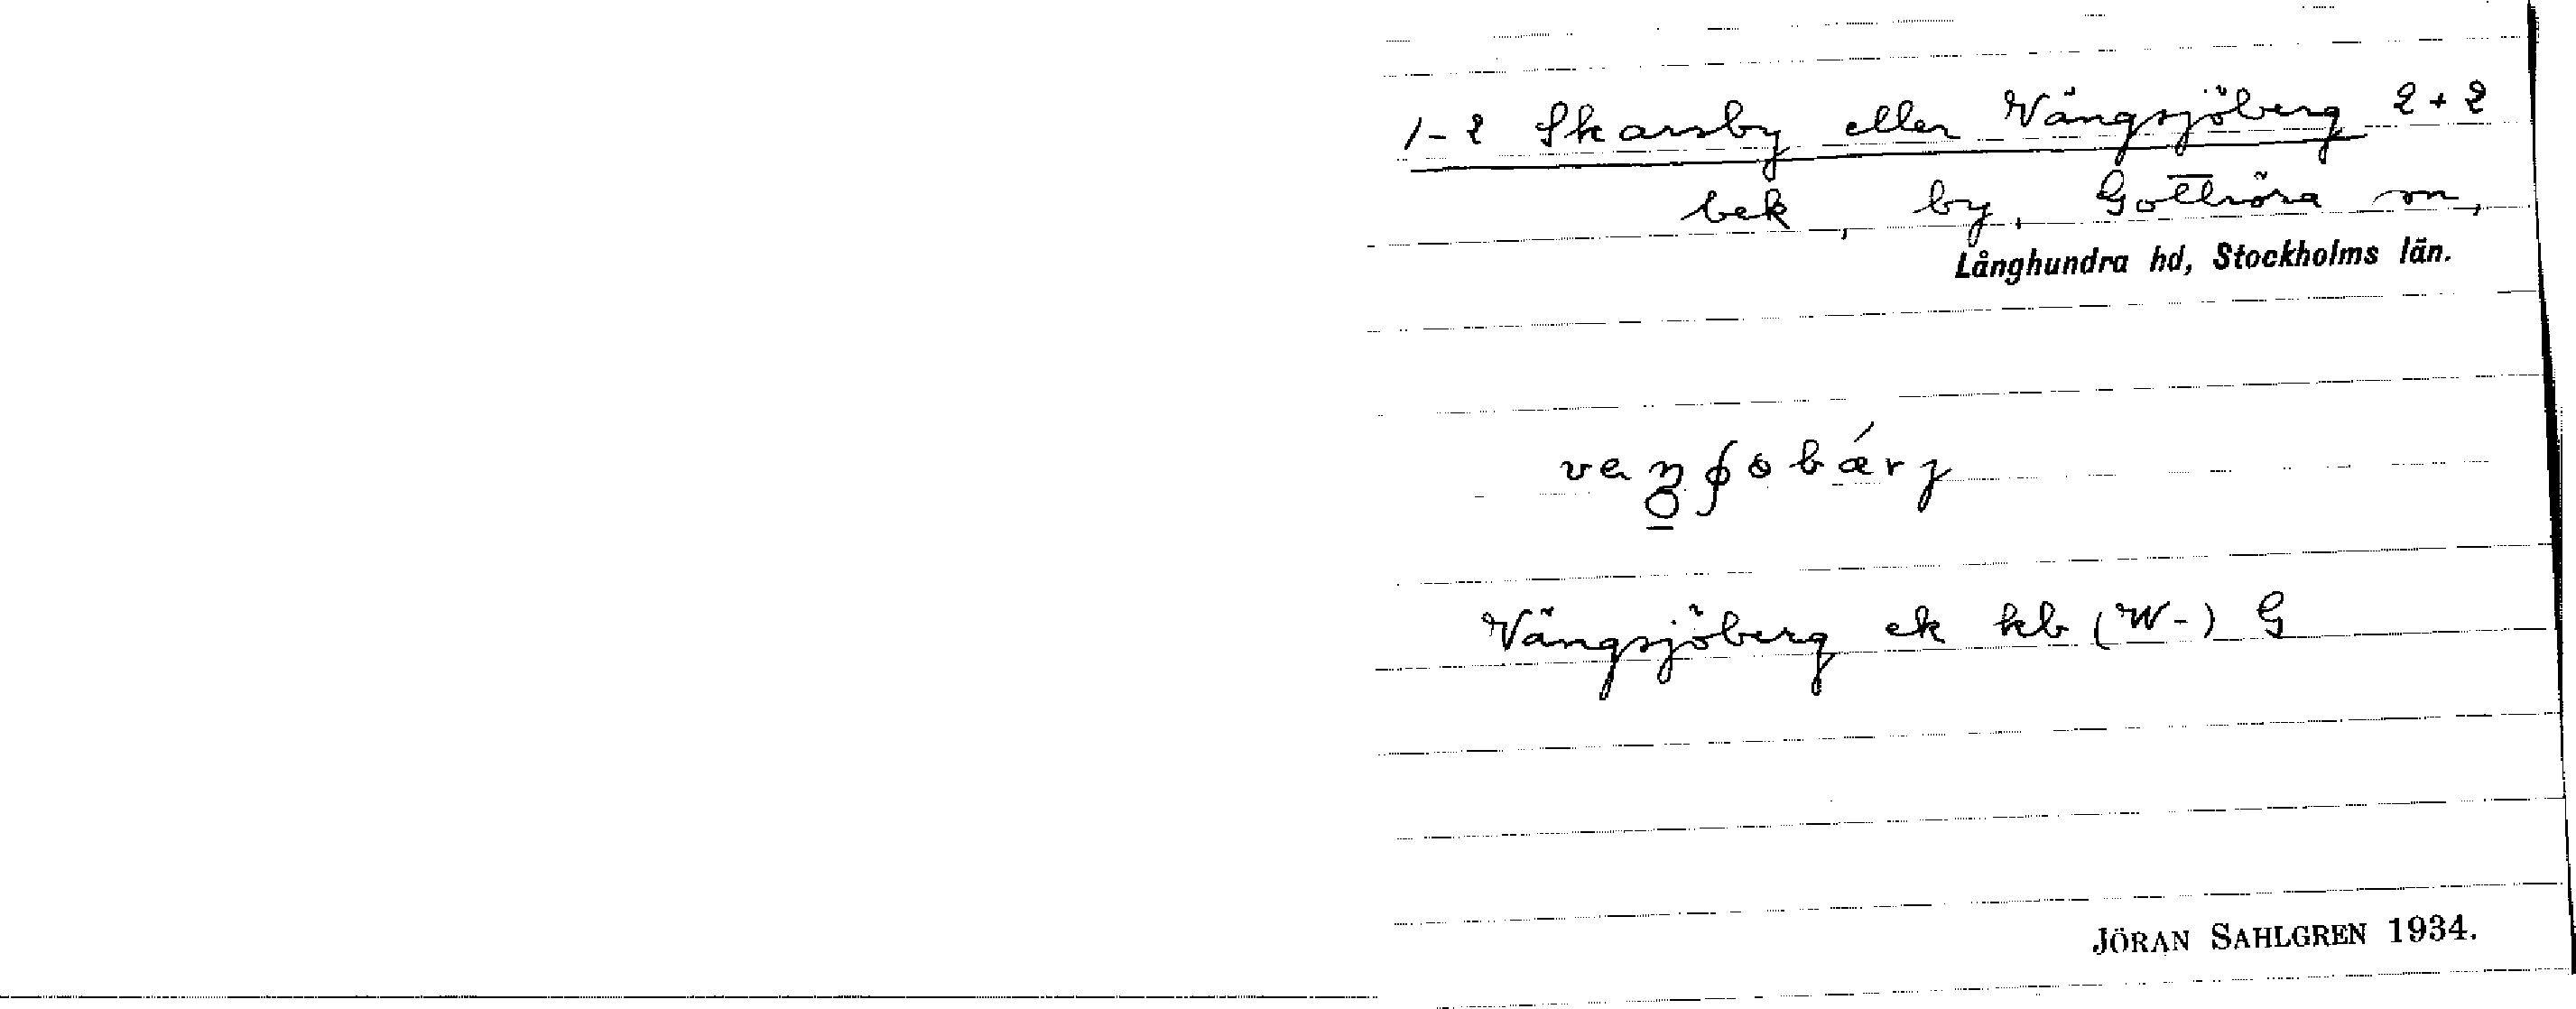 1-2 Skarsby eller Vängsjöberg 2+2
bek, by, Gottröra sn,
Långhundra hd, Stockholms län.
Vängsjöberg ek kb (W-) G
JÖRAN SAHLGREN 1934.